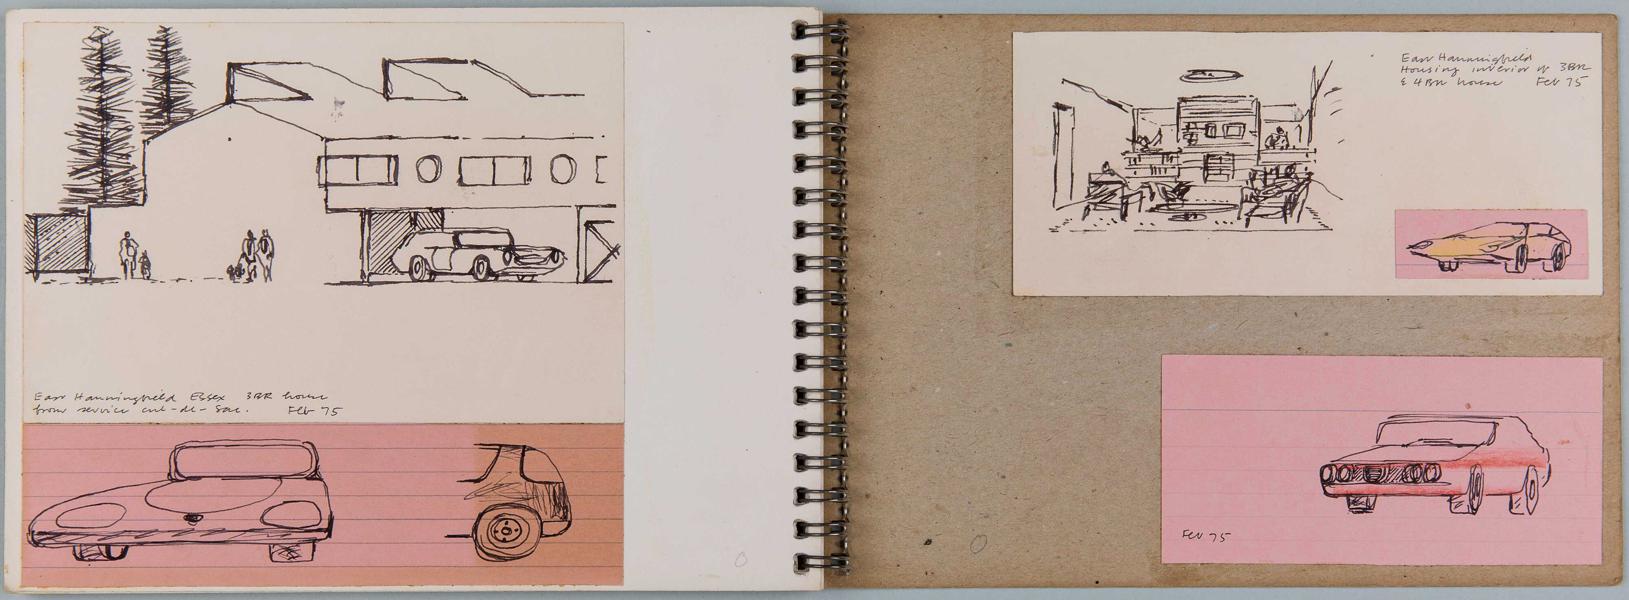 East Hanningfield Essex 3BR house
from service cul-de-sac. Feb 75
East Hanningfield
Housing interior of 3BR
& 4BR house Feb 75
Feb 75